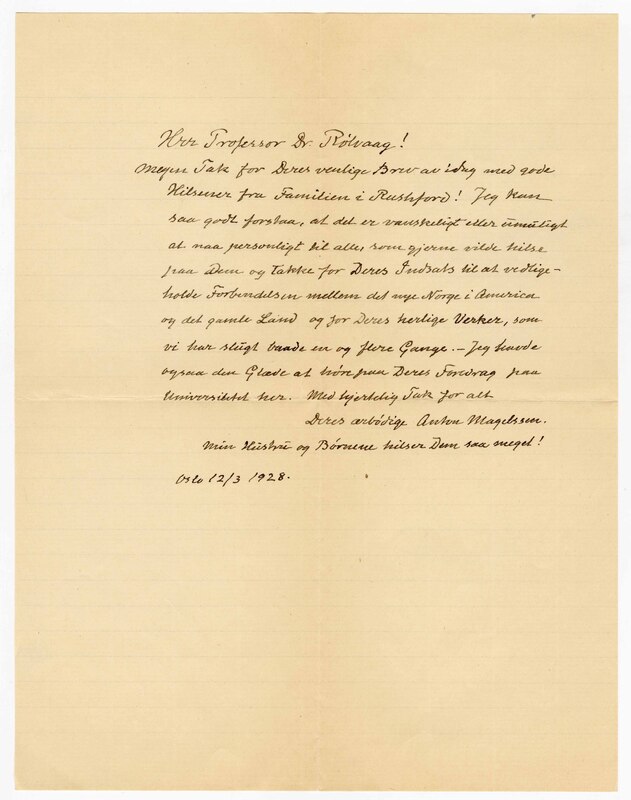 Herr Professor Dr. Rölvaag!
Megen Tak for Deres venlige Brev av idag med gode
Hilsener fra Familien i Rushford! Jeg kan
saa godt forstaa, at det er vanskeligt eller umuligt
at naa personligt til alle, som gjerne vilde hilse
paa Dem og takke for Deres Indsats til at vedlige-
holde Forbindelsen mellem det nye Norge i America
og det gamle Land og for Deres herlige Verker, som
vi har slugt baade en og flere Gange. - Jeg havde
ogsaa den Glæde at høre paa Deres Foredrag paa
Universitetet her. Med hjertelig Tak for alt
Deres ærbödige Anton Magelssen.
Min Hustru og Börnene hilser Dem saa meget!
Oslo 12/3 1928.